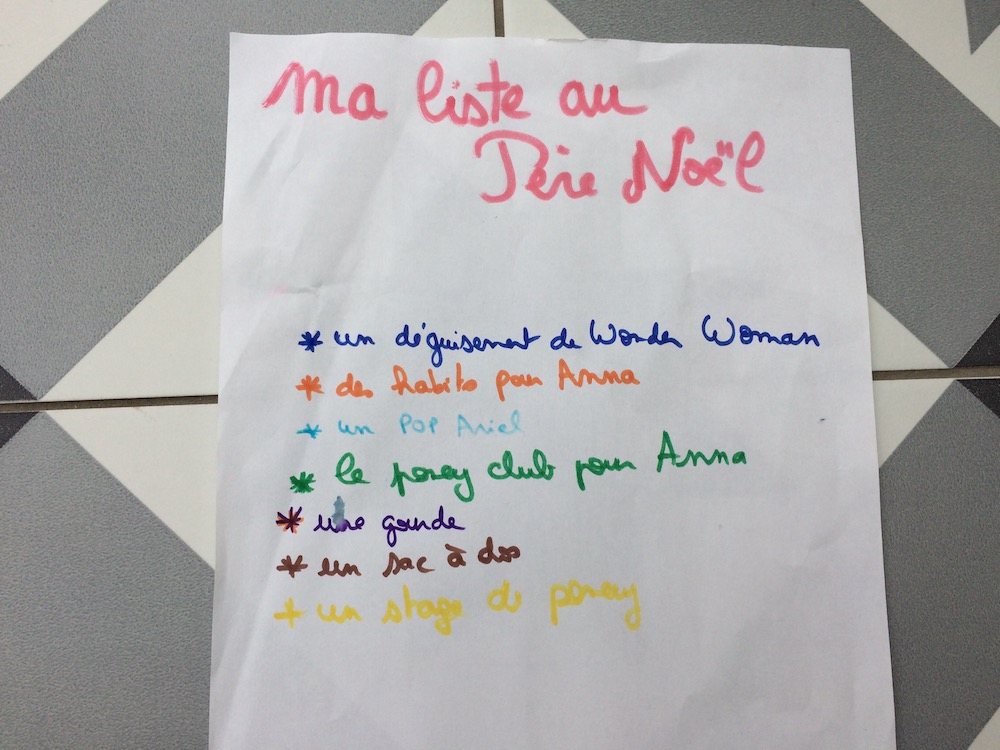 Ma liste au
Père Noël
* un déguisement de Wonder Woman
* des habits pour Anna
* un POP Ariel
* le poney club pour Anna
* une gourde
* un sac à dos
* un stage de poney